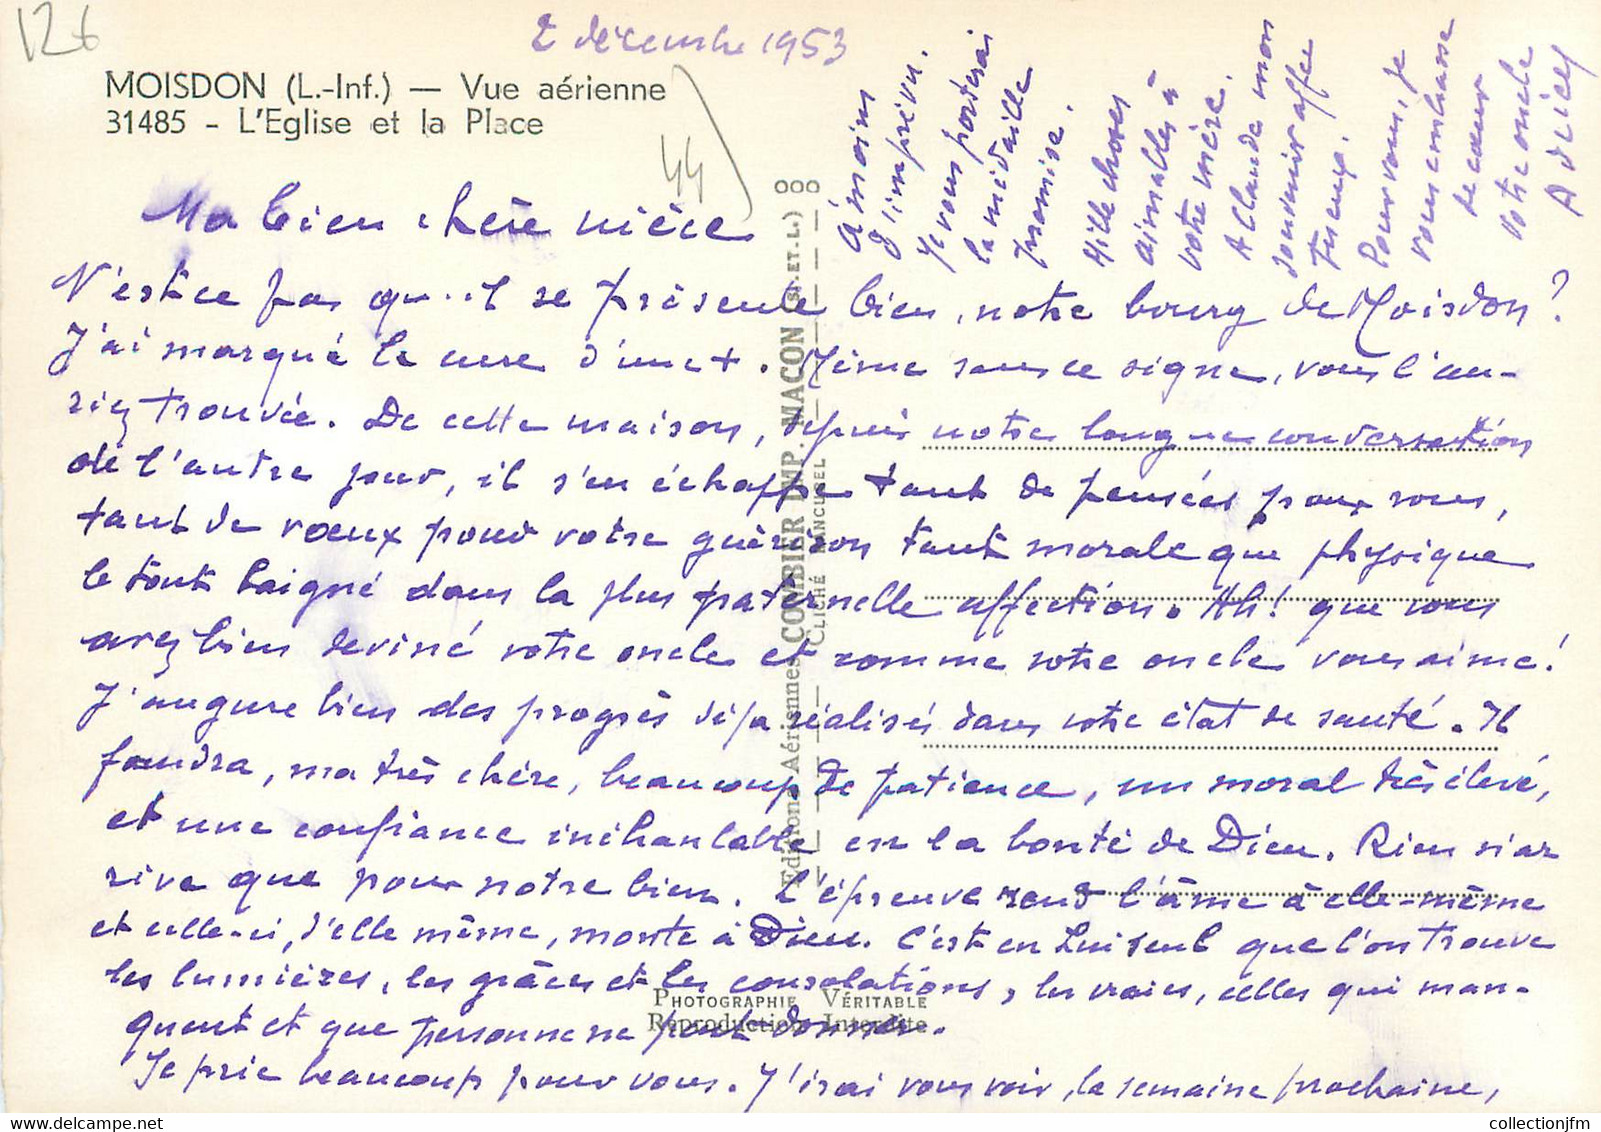 126
2 décembre 1953
MOISDON (L.-Inf.) — Vue aérienne
31485 - L'Eglise et la Place
44
Ma bien chère nièce
N'est ce pas qu'il se présente bien, notre bourg de Moisdon?
J'ai marqué la cure d'une +. Même sans ce signe, vous l'au-
riez trouvée. De cette maison, depuis notre longue conversation
de l'autre jour, il s'en échappe tant de pensées pour vous,
tant de vœux pour votre guérison tant morale que physique
le tout baigné dans la plus paternelle affection. Ah! que vous
avez bien deviné votre oncle et comme votre oncle vous aime!
J'augure bien des progrès déjà réalisés dans votre état de santé. Il
faudra, ma très chère, beaucoup de patience, un moral très élevé,
et une confiance inébranlable en la bonté de Dieu. Rien n'ar
rive que pour notre bien. L'épreuve rend l'âme à elle-même
et celle-ci, d'elle même, monte à Dieu. C'est en Lui seul que l'on trouve
les lumières, les grâces et les consolations, les vraies, celles qui man-
quent et que personne ne peut donner.
Je prie beaucoup pour vous. J'irai vous voir, la semaine prochaine,
à moins
d'imprévu.
Je vous porterai
la médaille
promise.
Mille choses
aimables à
votre mère.
A Claude mon
souvenir affec
tueux.
Pour vous, je
vous embrasse
de cœur
Votre oncle
Editions Aériennes COMBIER IMP. MACON (S.-ET-L.)
CLICHÉ RANCUREL
PHOTOGRAPHIE VÉRITABLE
Reproduction Interdite
collectionjfm